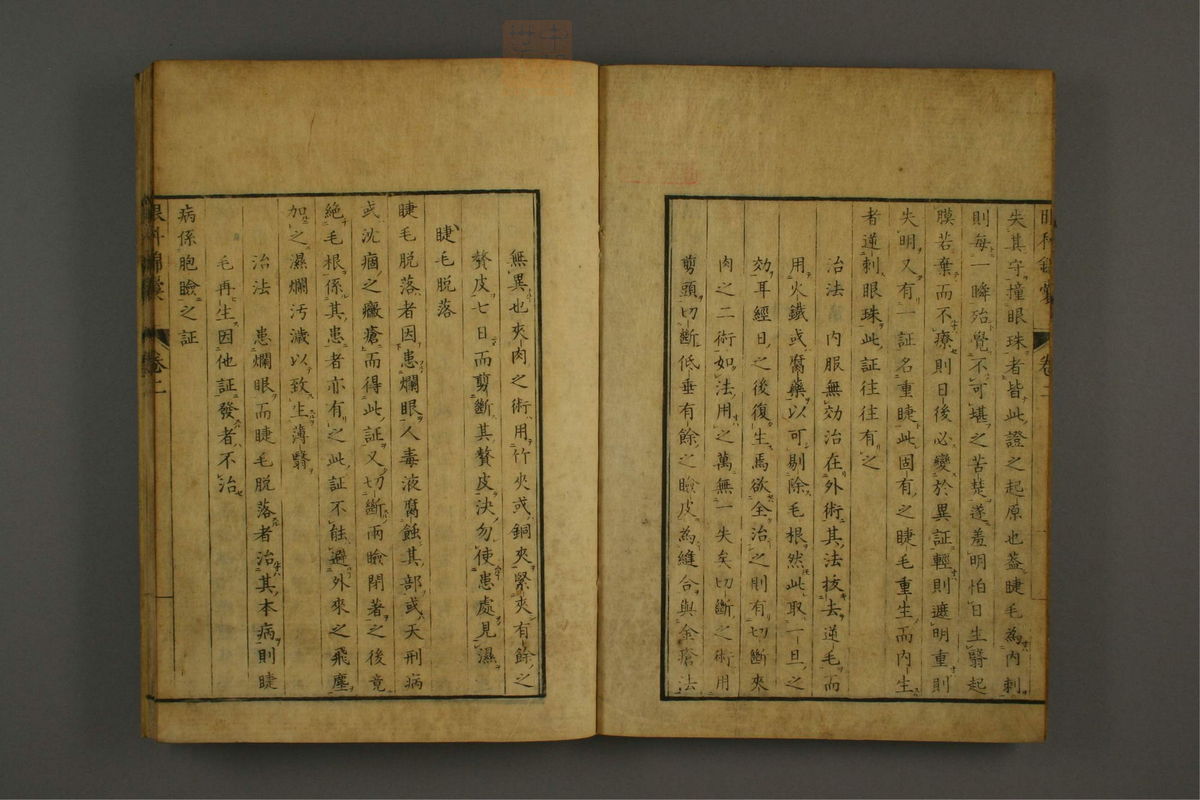 眼科錦囊 卷二
失其守撞眼珠者皆此證之起原也蓋睫毛爲內刺
則每一瞬殆覺不可堪之苦楚遂羞明怕日生翳起
膜若棄而不療則日後必變於異証輕則遮明重則
失明又有一証名重睫此固有之睫毛重生而內生
者逆刺眼珠此証往往有之
治法 內服無効治在外術其法拔去逆毛而
用火鐵或腐藥以可剔除毛根然此取一旦之
効耳經日之後復生焉欲全治之則有切斷夾
肉之二術如法用之萬無一失矣切斷之術用
剪頭切斷低垂有餘之瞼皮為縫合與金瘡法
無異也夾肉之術用竹夾或銅夾緊夾有餘之
贅皮七日而剪斷其贅皮決勿使患處見濕
睫毛脫落
睫毛脫落者因患爛眼人毒液腐蝕其部或天刑病
或沈痼之黴瘡而得此証又切斷兩瞼閉著之後竟
絕毛根係其患者亦有之此証不能避外來之飛塵
加之濕爛汚濊以致生薄翳
治法 患爛眼而睫毛脫落者治其本病則睫
毛再生因他証發者不治
病係胞瞼之証
眼科錦囊 卷二